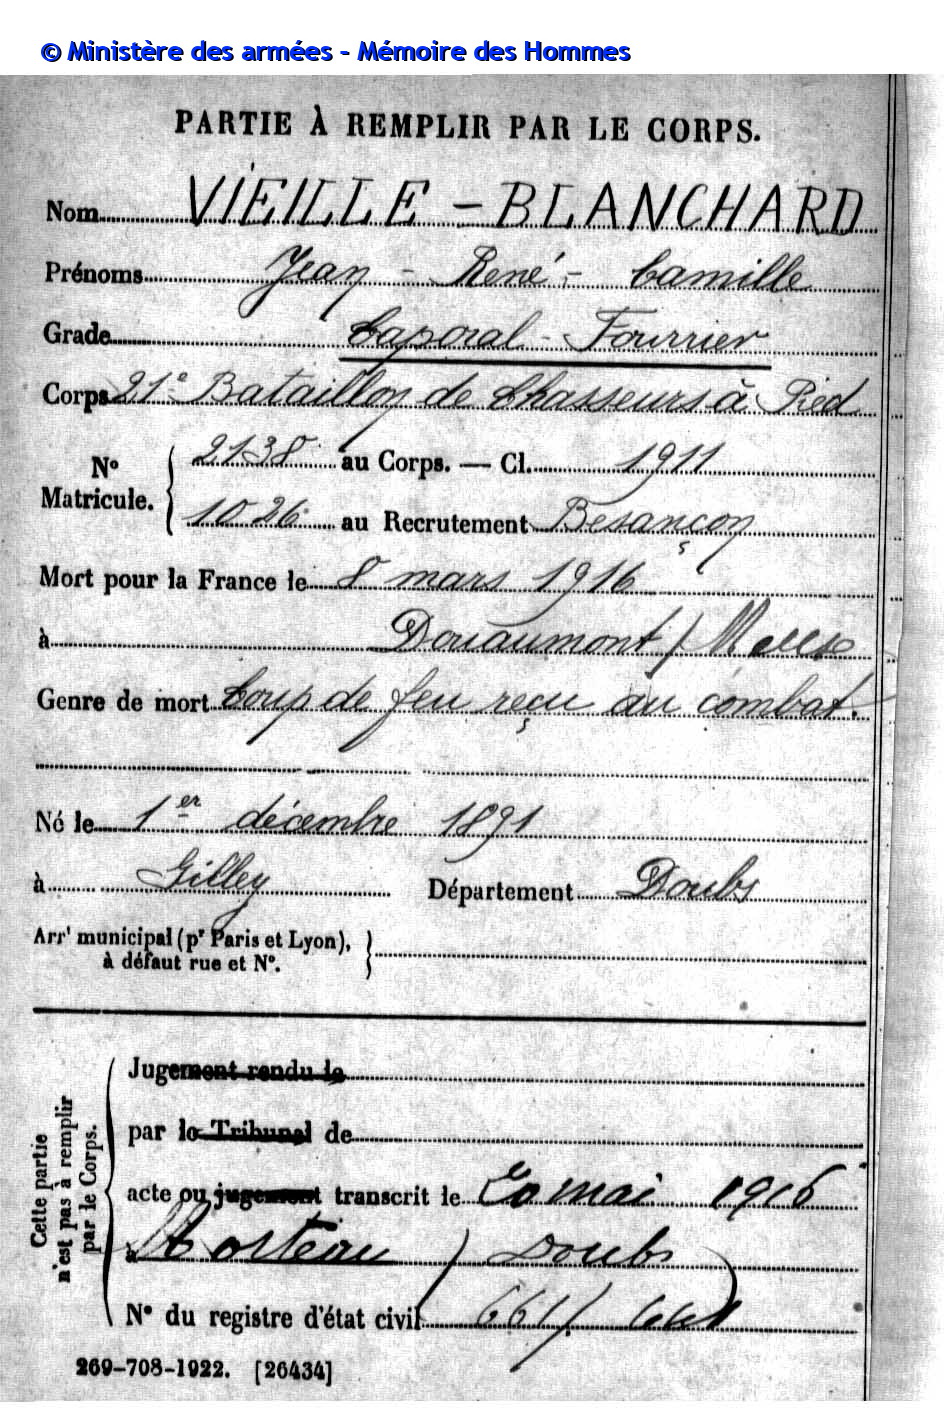 © Ministère des armées - Mémoire des Hommes
PARTIE À REMPLIR PAR LE CORPS.
Nom VIEILLE - BLANCHARD
Prénoms Jean - René - Camille
Grade Caporal - Fourrier
Corps 21e Bataillon de Chasseurs à Pied
No Matricule. { 2138 au Corps. — Cl. 1911
1026 au Recrutement Besançon
Mort pour la France le 8 mars 1916
à Douaumont / Meuse
Genre de mort Coup de feu reçu au combat.
Né le 1er décembre 1891
à Gilley Département Doubs
Arrt municipal (pr Paris et Lyon), }
à défaut rue et No.
Cette partie
n'est pas à remplir
par le Corps.
Jugement rendu le
par le Tribunal de
acte ou jugement transcrit le 20 mai 1916
à Morteau / Doubs
No du registre d'état civil 661/
269-708-1922. [26434]